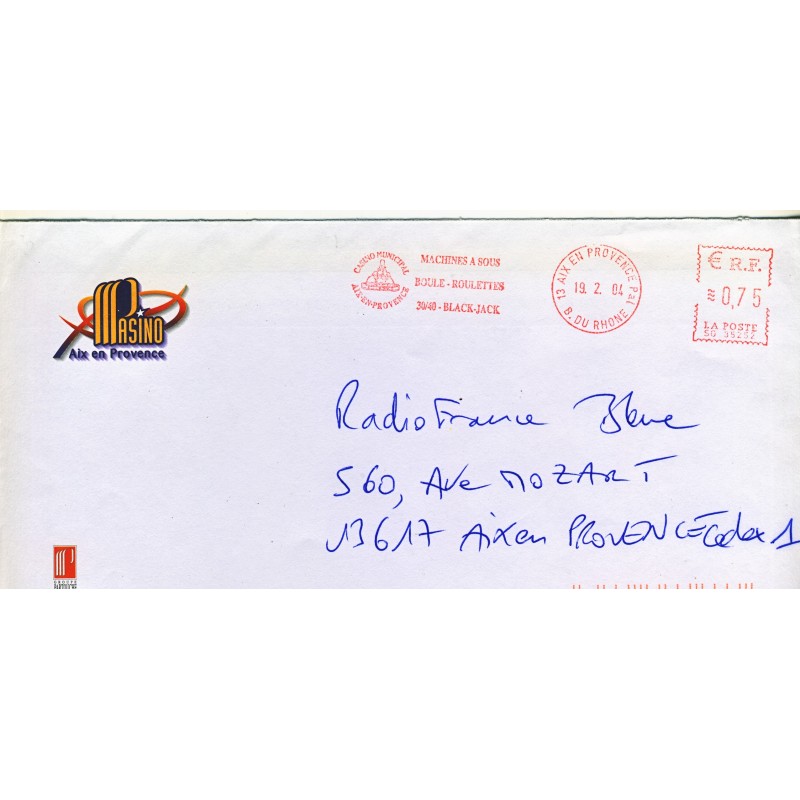 CASINO MUNICIPAL
AIX-EN-PROVENCE
MACHINES A SOUS
BOULE - ROULETTES
30/40 - BLACK-JACK
13 AIX EN PROVENCE Pal
19. 2. 04
B. DU RHONE
€ R.F.
0,75
LA POSTE
SG 35252
PASINO
Aix en Provence
Radio France Bleue
560, Ave MOZART
13617 Aix en PROVENCE Cedex 1
GROUPE
PARTOUCHE